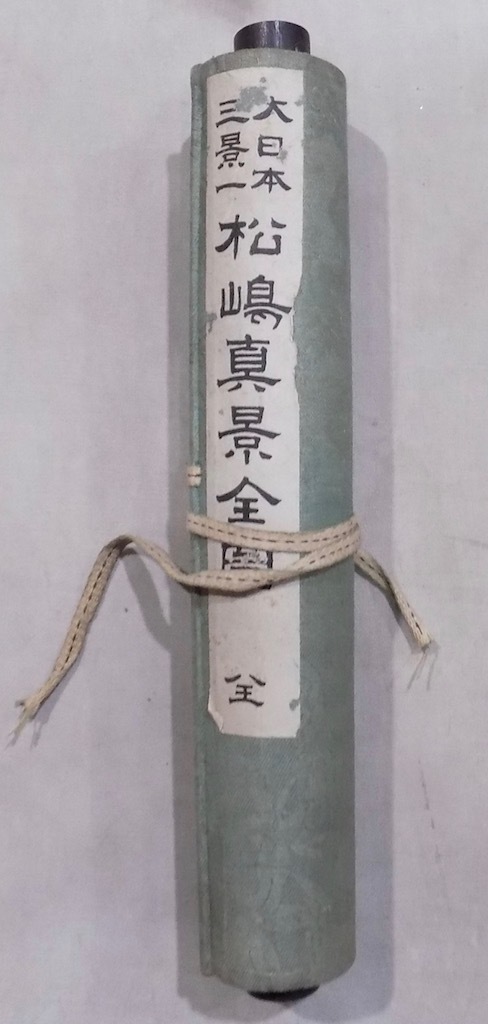 大日本
三景一
松嶋真景全圖
全